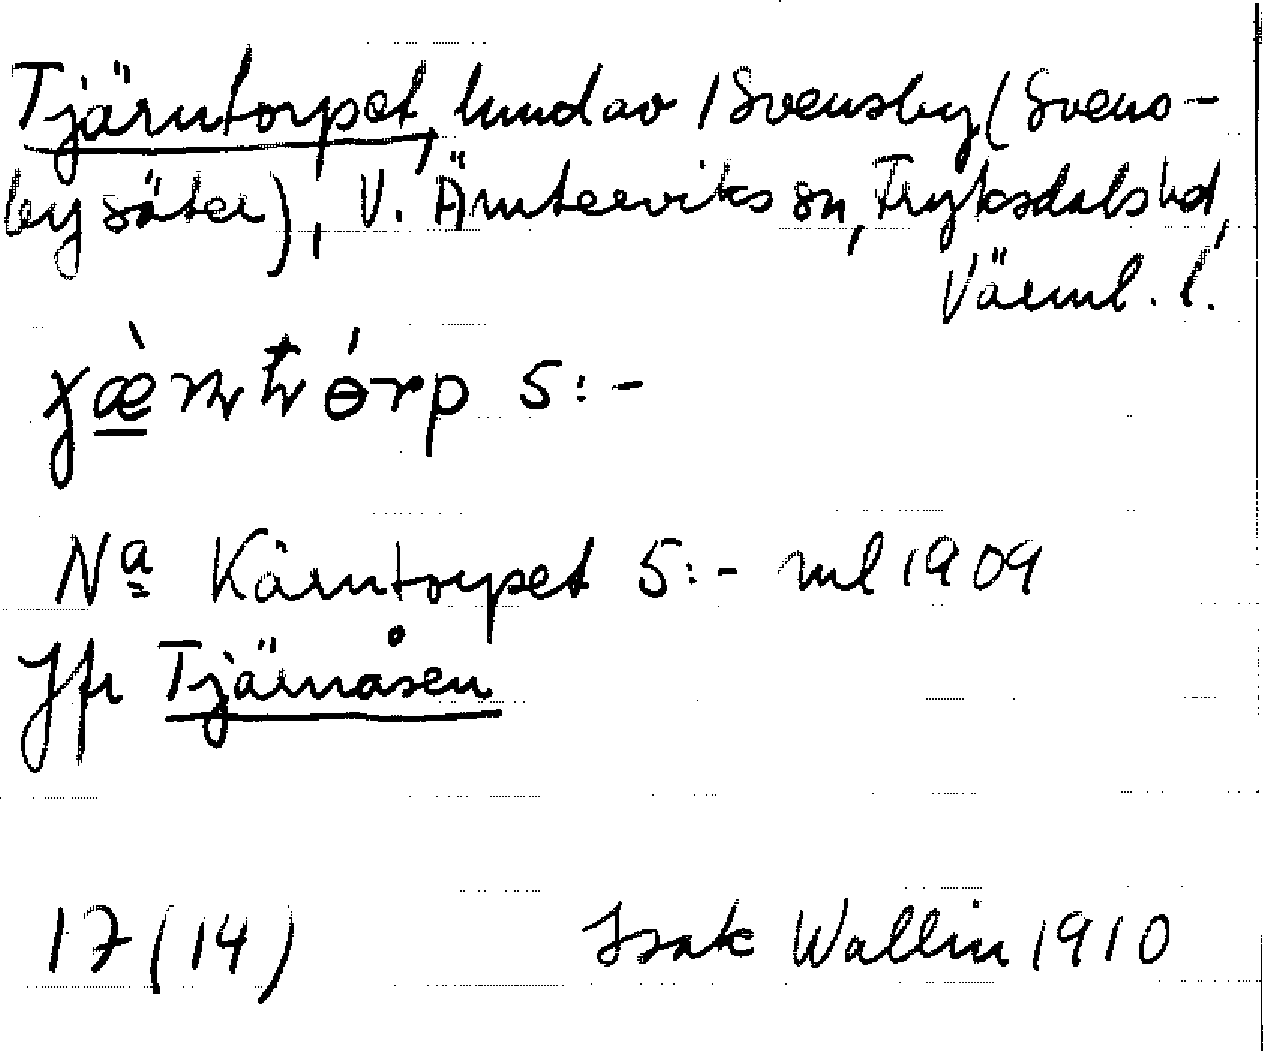 Tjärntorpet, lund av 1 Svensby (Svens-
bysäter), V. Ämterviks sn, Fryksdals hd,
Värml. l.
5:-
Na Kärntorpet 5:- ml 1909
Jfr Tjärnåsen
17 (14) Isak Wallin 1910